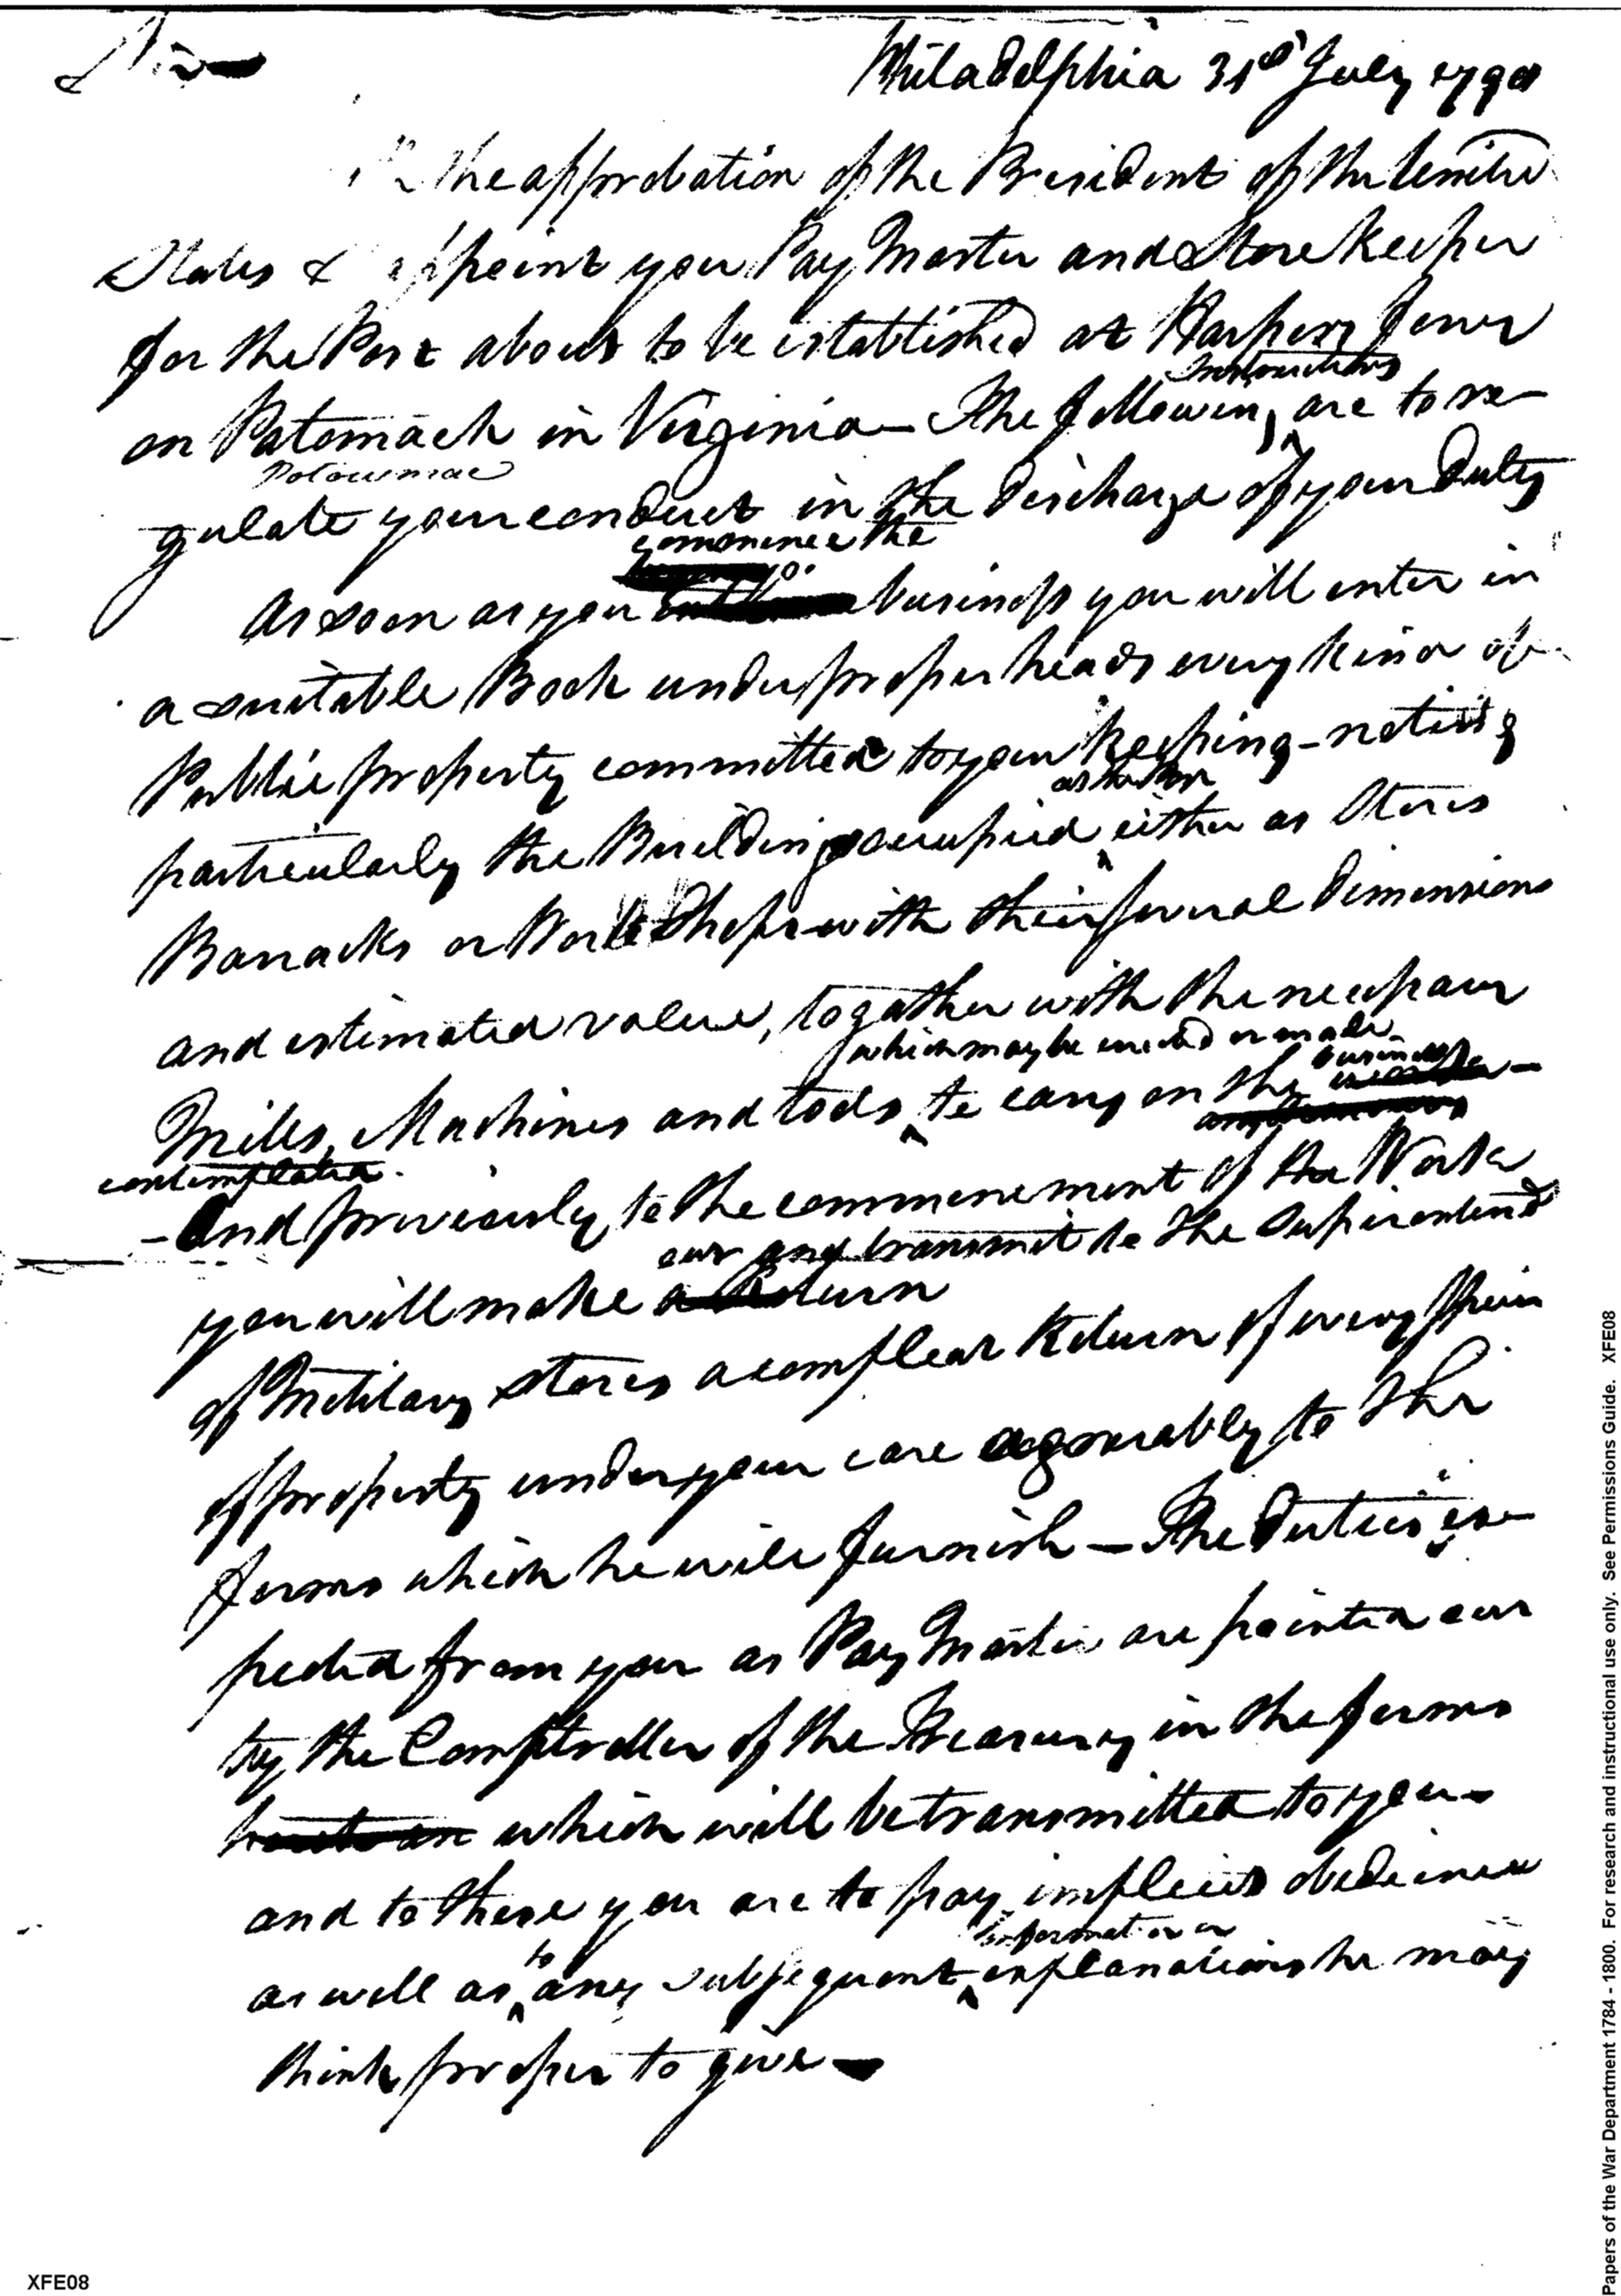 Sir
Philadelphia 31st July 1798
the approbation of the President of the United
States I appoint you Pay Master and Store Keeper
for the Post about to be established at Harpers Ferry
Instructions
on Patomack in Virginia – The following are to re-
Potowmac
gulate your conduct in the discharge of your Duty
commence the
As soon as you business you will enter in
a suitable Book under proper heads every kind of
Public property committed to your keeping – noticing
particularly the Buildings occupied either as Stores
Barracks or Work Shops with their several dimensions
and estimated value, together with the necessary
which may be erected or made
business
Mills, Machines and tools to carry on the
contemplated.
– And previously to the commencement of the Works
out and transmit to the Superintend
you will make a Return
of Military stores a compleat Return of every species
of property under your care agreeably to the
forms which he will furnish – The Duties ex-
pected from you as Pay Master are pointed out
by the Comptroller of the Treasury in the forms
which will be transmitted to you –
and to these you are to pay implicit obedience
to
information or
as well as any subsequent explanations he may
think proper to give –
XFE08
Papers of the War Department 1784 - 1800. For research and instructional use only. See Permissions Guide. XFE08